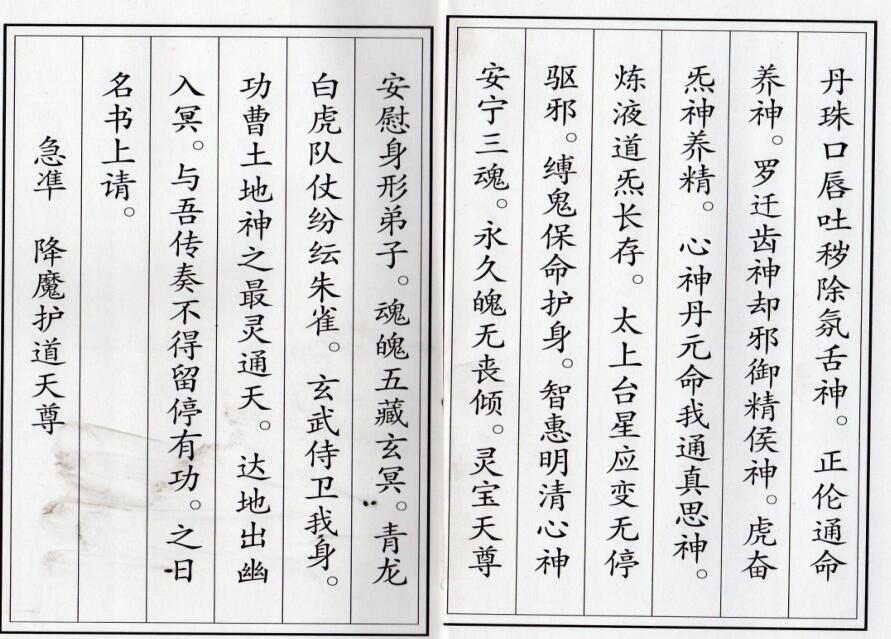 丹珠口唇吐秽除氛舌神。正伦通命
养神。罗迁齿神却邪御精侯神。虎奋
炁神养精。心神丹元命我通真思神。
炼液道炁长存。太上台星应变无停
驱邪。缚鬼保命护身。智惠明清心神
安宁三魂。永久魄无丧倾。灵宝天尊
安慰身形弟子。魂魄五藏玄冥。青龙
白虎队仗纷纭朱雀。玄武侍卫我身。
功曹土地神之最灵通天。达地出幽
入冥。与吾传奏不得留停有功。之日
名书上请。
急准 降魔护道天尊